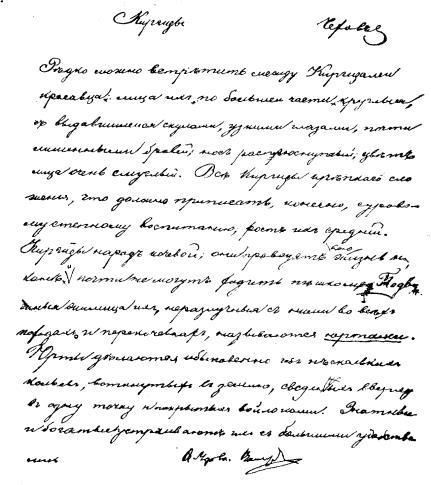 Киргизы
Рѣдко можно встрѣтить между Киргизами
красавца: лица ихъ по большей части круглыя,
съ выдавшимися скулами, узкими глазами, почти
лишенными бровей; носъ расплюснутый; цвѣтъ
лица очень смуглый. Всѣ Киргизы крѣпкаго сло
женія, что должно приписать, конечно, сурово
му степному воспитанію, ростъ ихъ средній.
Киргизы народъ кочевой; они проводятъ свою жизнь на
конѣ, и почти не могутъ ходить пѣшкомъ. Подви
жныя жилища ихъ, неразлучныя съ ними во всѣхъ
походахъ и перекочевкахъ, называются юртами.
Юрты дѣлаются обыкновенно изъ нѣсколькихъ
кольевъ, воткнутыхъ въ землю, сведенныхъ вверху
въ одну точку и покрытыхъ войлоками. Знатные
и богатые устраиваютъ ихъ съ большими удобства
ми.